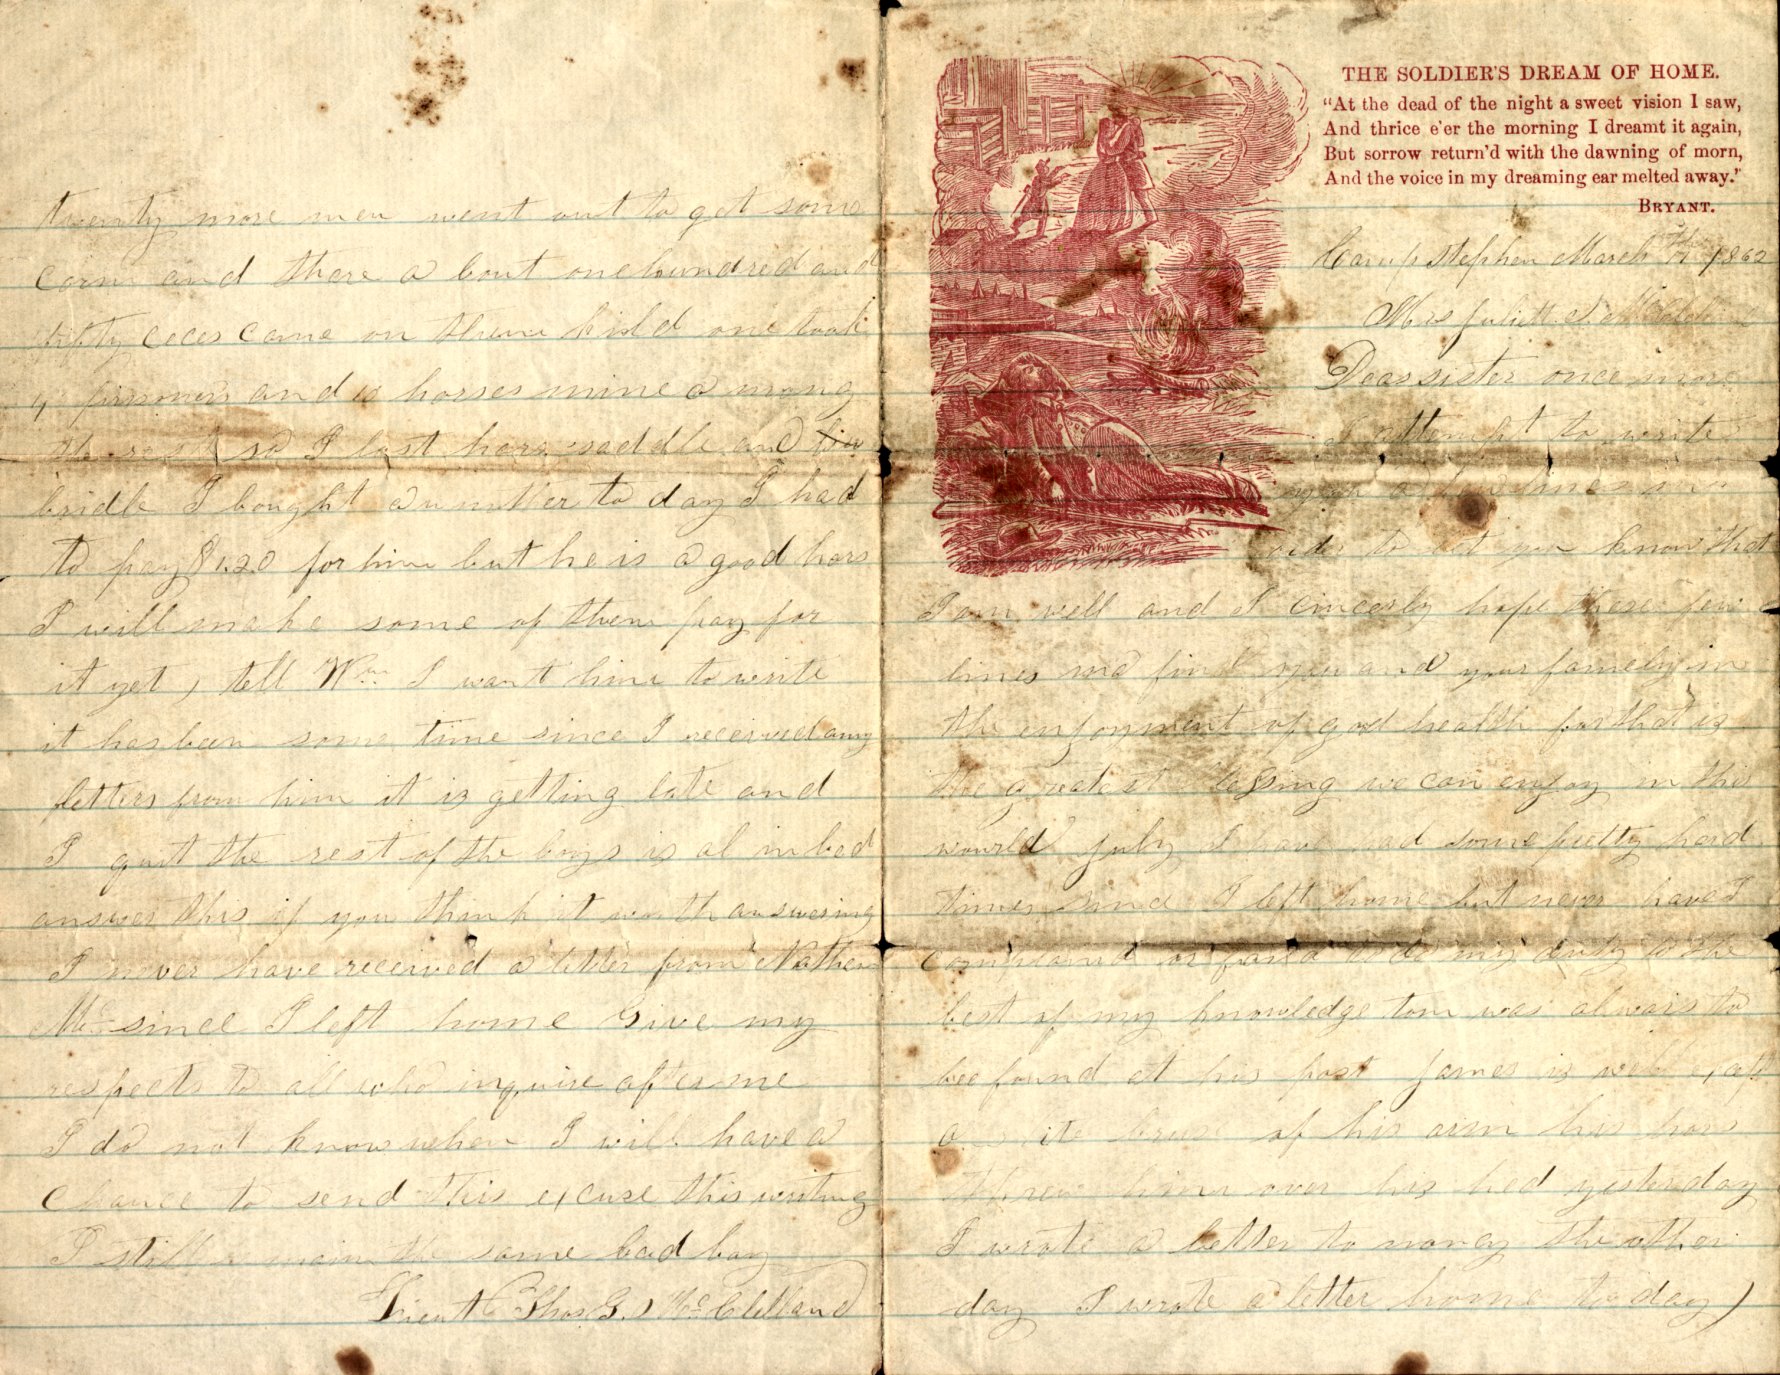 THE SOLDIER'S DREAM OF HOME.
"At the dead of the night a sweet vision I saw,
And thrice e'er the morning I dreamt it again,
But sorrow return'd with the dawning of morn,
And the voice in my dreaming ear melted away."
BRYANT.
Camp Stephen March 1862
Mrs Juliett S
Dear sister once more
I attempt to write
you a few lines in
order to let you know that
I am well and I cincerly hope these few
lines ma find you and your famely in
the enjoyment of good health for that is
the greatest blessing we can enjoy in this
wourld July I have had some pretty hard
times since I left home but never have I
complained or to do my duty to the
best of my knowledge tom was alwais to
bee found at his post James is well except
a brus of his arm his hors
threw him over his hed yesterday
I wrote a letter to nancy the other
day I wrote a letter home to day)
twenty more men went out to get some
corn and there a bout one hundred and
fifty ceces came on them kild one took
4 prisoners and 10 horses mine a mong
the rest so I lost hors saddle and
bridle I bought a nuther to day I had
to pay $120 for him but he is a good hors
I will make some of them pay for
it yet, tell Wm I want him to write
it has been some time since I received any
letters from him it is getting late and
I quit the rest of the boys is al in bed
answer this if you think it worth answering
I never have received a letter from Nathen
Mc since I left home Give my
respects to all who inquire after me
I do not know when I will have a
chance to send this excuse this writing
I still main the same bad boy
Thos G. McClelland